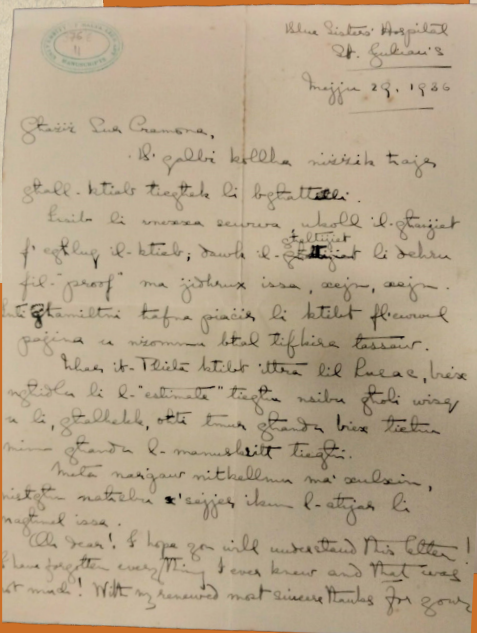 Blue Sisters' Hospital
St. Julian's
Mejju 29, 1936
Għażiż Sur Cremona,
B' qalbi kollha niżżik ħajr
għall-ktieb tiegħek li bgħattli.
li u koll il-
f' egħluq il-ktieb; dawk il- għaltijiet li dehru
fil-"proof" ma jidhrux issa, xejn, xejn.
Inti għamiltni ħafna pjaċir li ktibt fl-ewwel
paġina u nżommu bħal tifkira
it-Tlieta ktibt ittra lil Lucac, biex
ngħidlu li l-"estimate" tiegħu nsibu għoli wisq
u li, għalhekk, għandu biex
għandu l-manuskritt tiegħi.
Meta nitkellmu ma' xulxin,
naraw x'sejjer ikun l-aħjar li
nagħmel issa.
Oh dear! I hope you will understand this letter!
I have forgotten everything I ever knew and that was
not much! With my renewed most sincere thanks for your